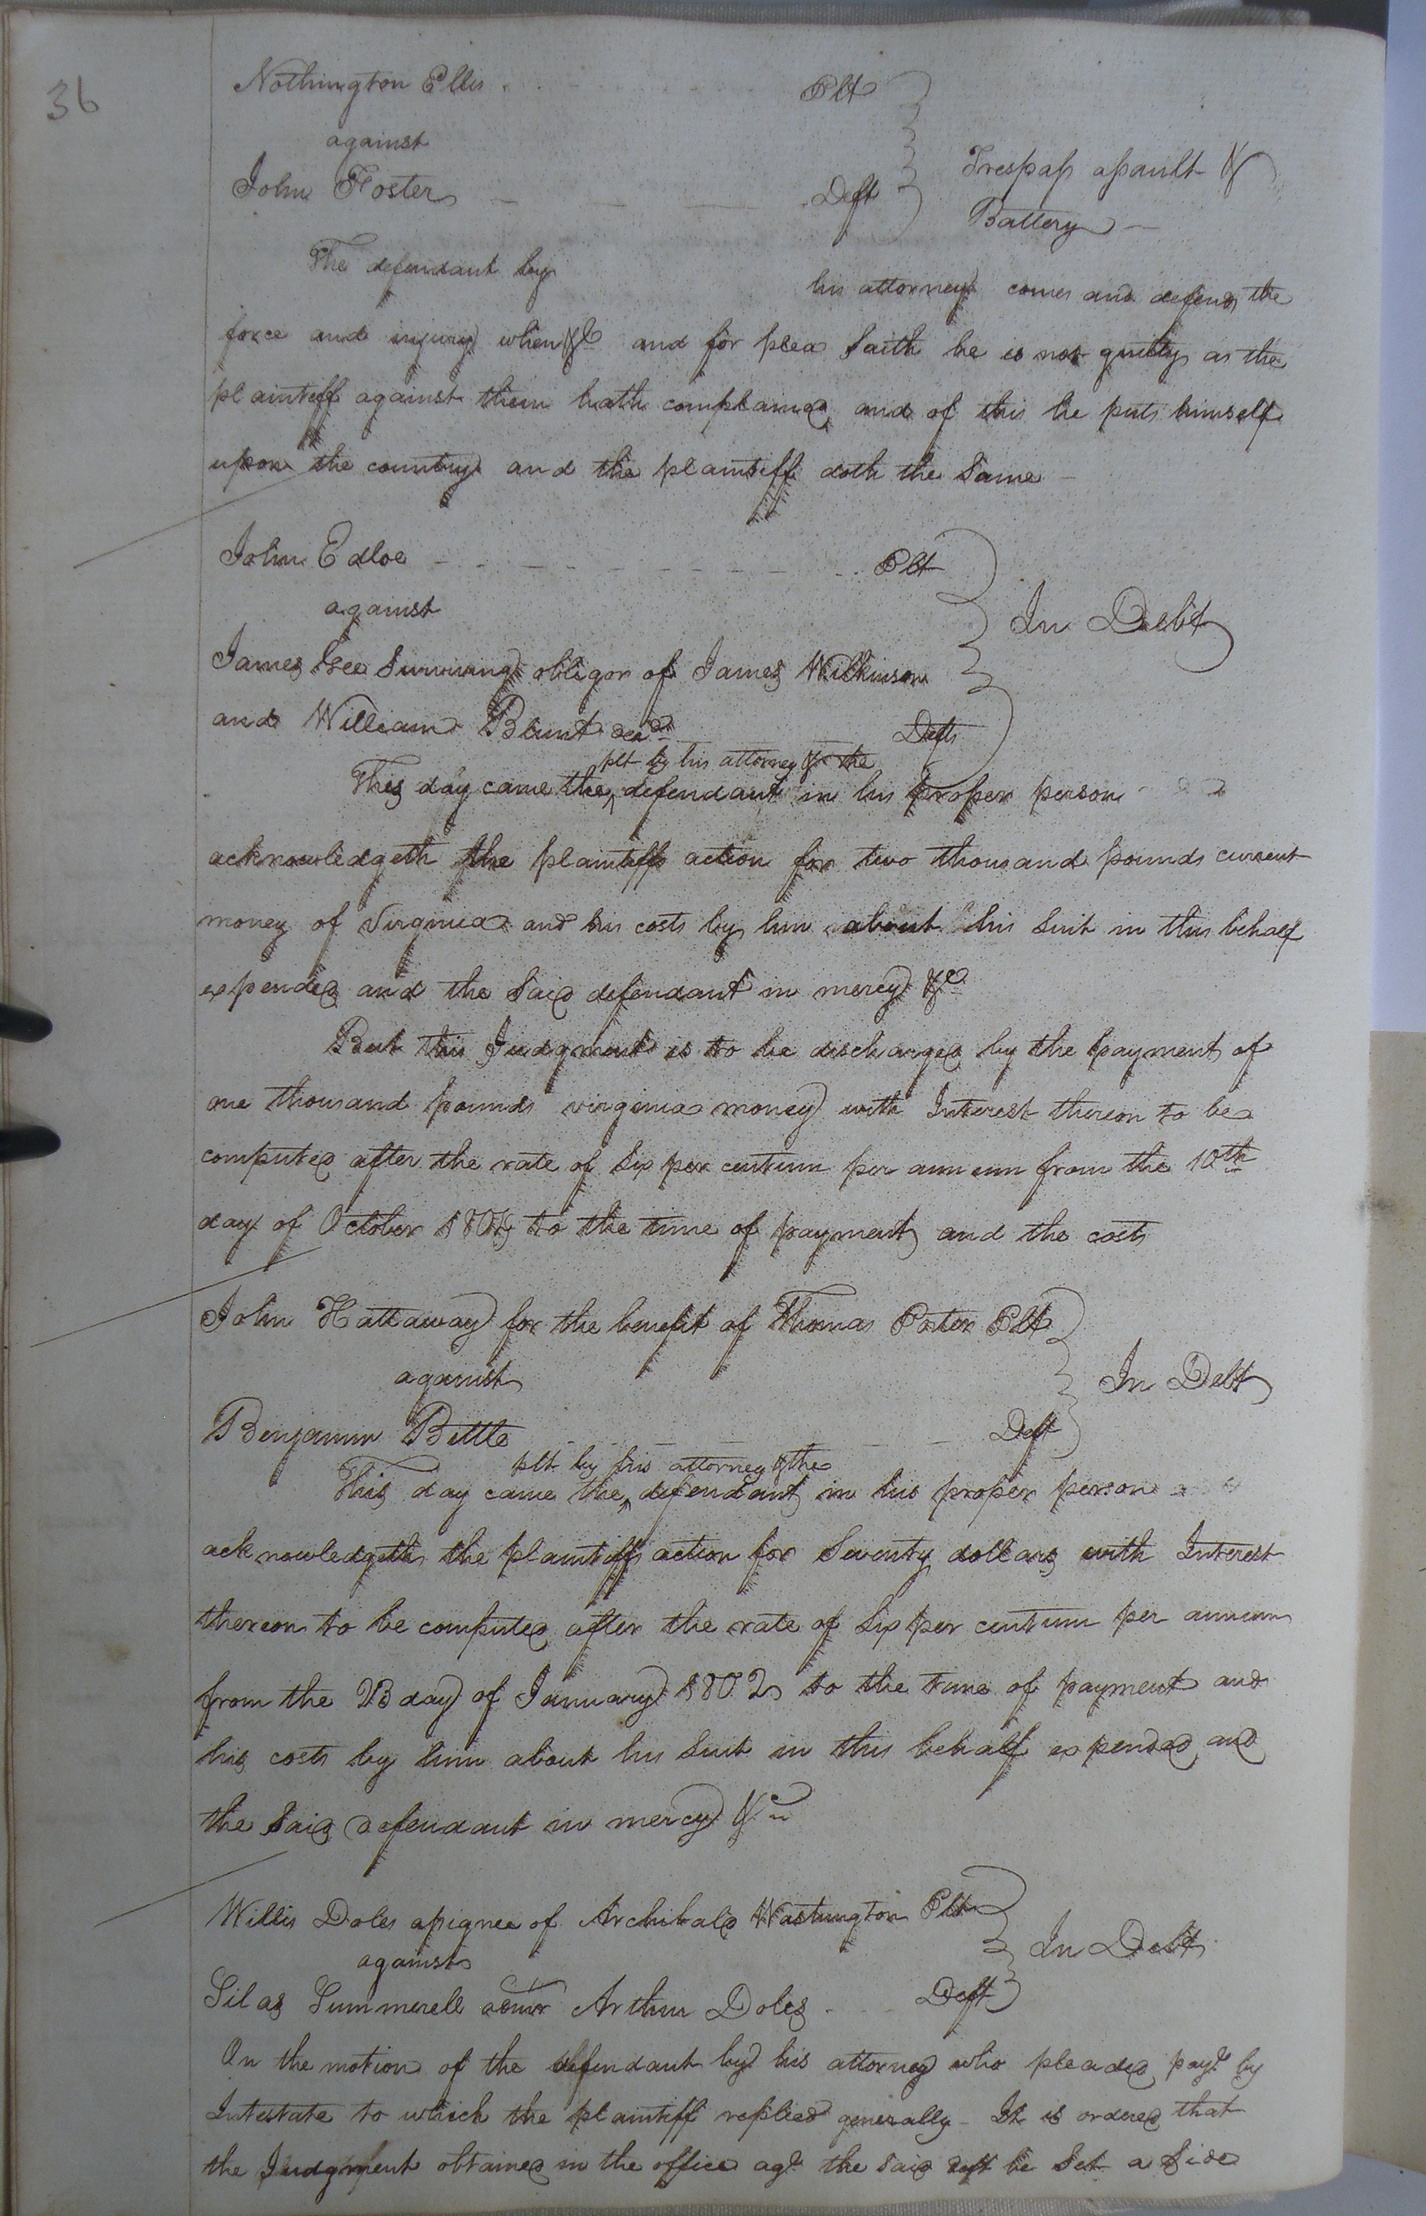 36
Nothington Ellis Plt
against
John Foster Deft
Trespass assault &
Battery
The defendant by his attorney comes and defends the
force and injury when &c and for plea Saith he is not guilty as the
plaintiff against them hath complained and of this he puts himself
upon the country and the plaintiff doth the Same
John Edloe Plt
against
In Debt
James Gee Surviving obligor of James Wilkinson
and William Blunt decd Defts
plt by his attorney & the
This day came the defendant in his proper person
acknowledgeth the plaintiffs action for two thousand pounds current
money of Virginia and his costs by him about his Suit in this behalf
expended and the Said defendant in mercy &c
But this Judgment is to be discharged by the payment of
one thousand pounds virginia money with Interest thereon to be
computed after the rate of Six per centum per annum from the 10th
day of October 1804 to the time of payment and the costs
John Hattaway for the benefit of Thomas Porter Plt
against
In Debt
Benjamin Bittle Deft
plt by his attorney & the
This day came the defendant in his proper person
acknowledgeth the plaintiffs action for Seventy dollars with Interest
thereon to be computed after the rate of Six per centum per annum
from the 23 day of January 1802 to the time of payment and
his costs by him about his Suit in this behalf expended and
the Said defendant in mercy &c
Willis Doles assignee of Archibald Washington Plt
against
In Debt
Silas Summerell admr Arthur Doles Deft
On the motion of the defendant by his attorney who pleaded payt by
Intestate to which the plaintiff replied generally It is ordered that
the Judgment obtained in the office agt the said deft be Set a Side